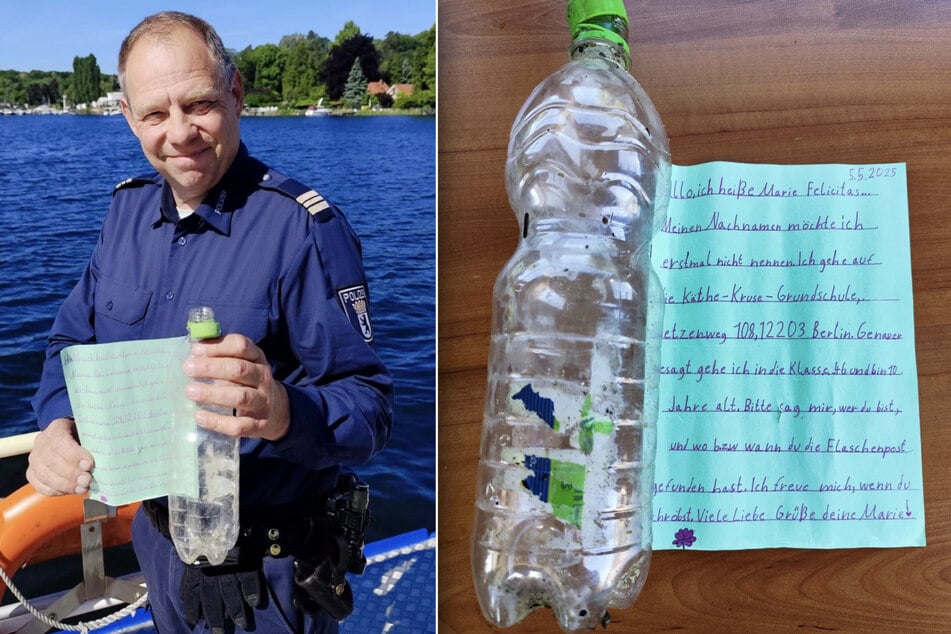 POLIZEI
5.5.2025
llo, ich heiße Marie Felicitas...
Meinen Nachnamen möchte ich
erstmal nicht nennen. Ich gehe auf
die Käthe-Kruse-Grundschule,
etzenweg 108, 12203 Berlin. Genauer
esagt gehe ich in die Klasse 4b und bin 10
Jahre alt. Bitte sag mir, wer du bist,
und wo bzw wann du die Flaschenpost
gefunden hast. Ich freue mich, wenn du
chreibst. Viele Liebe Grüße deine Marie!